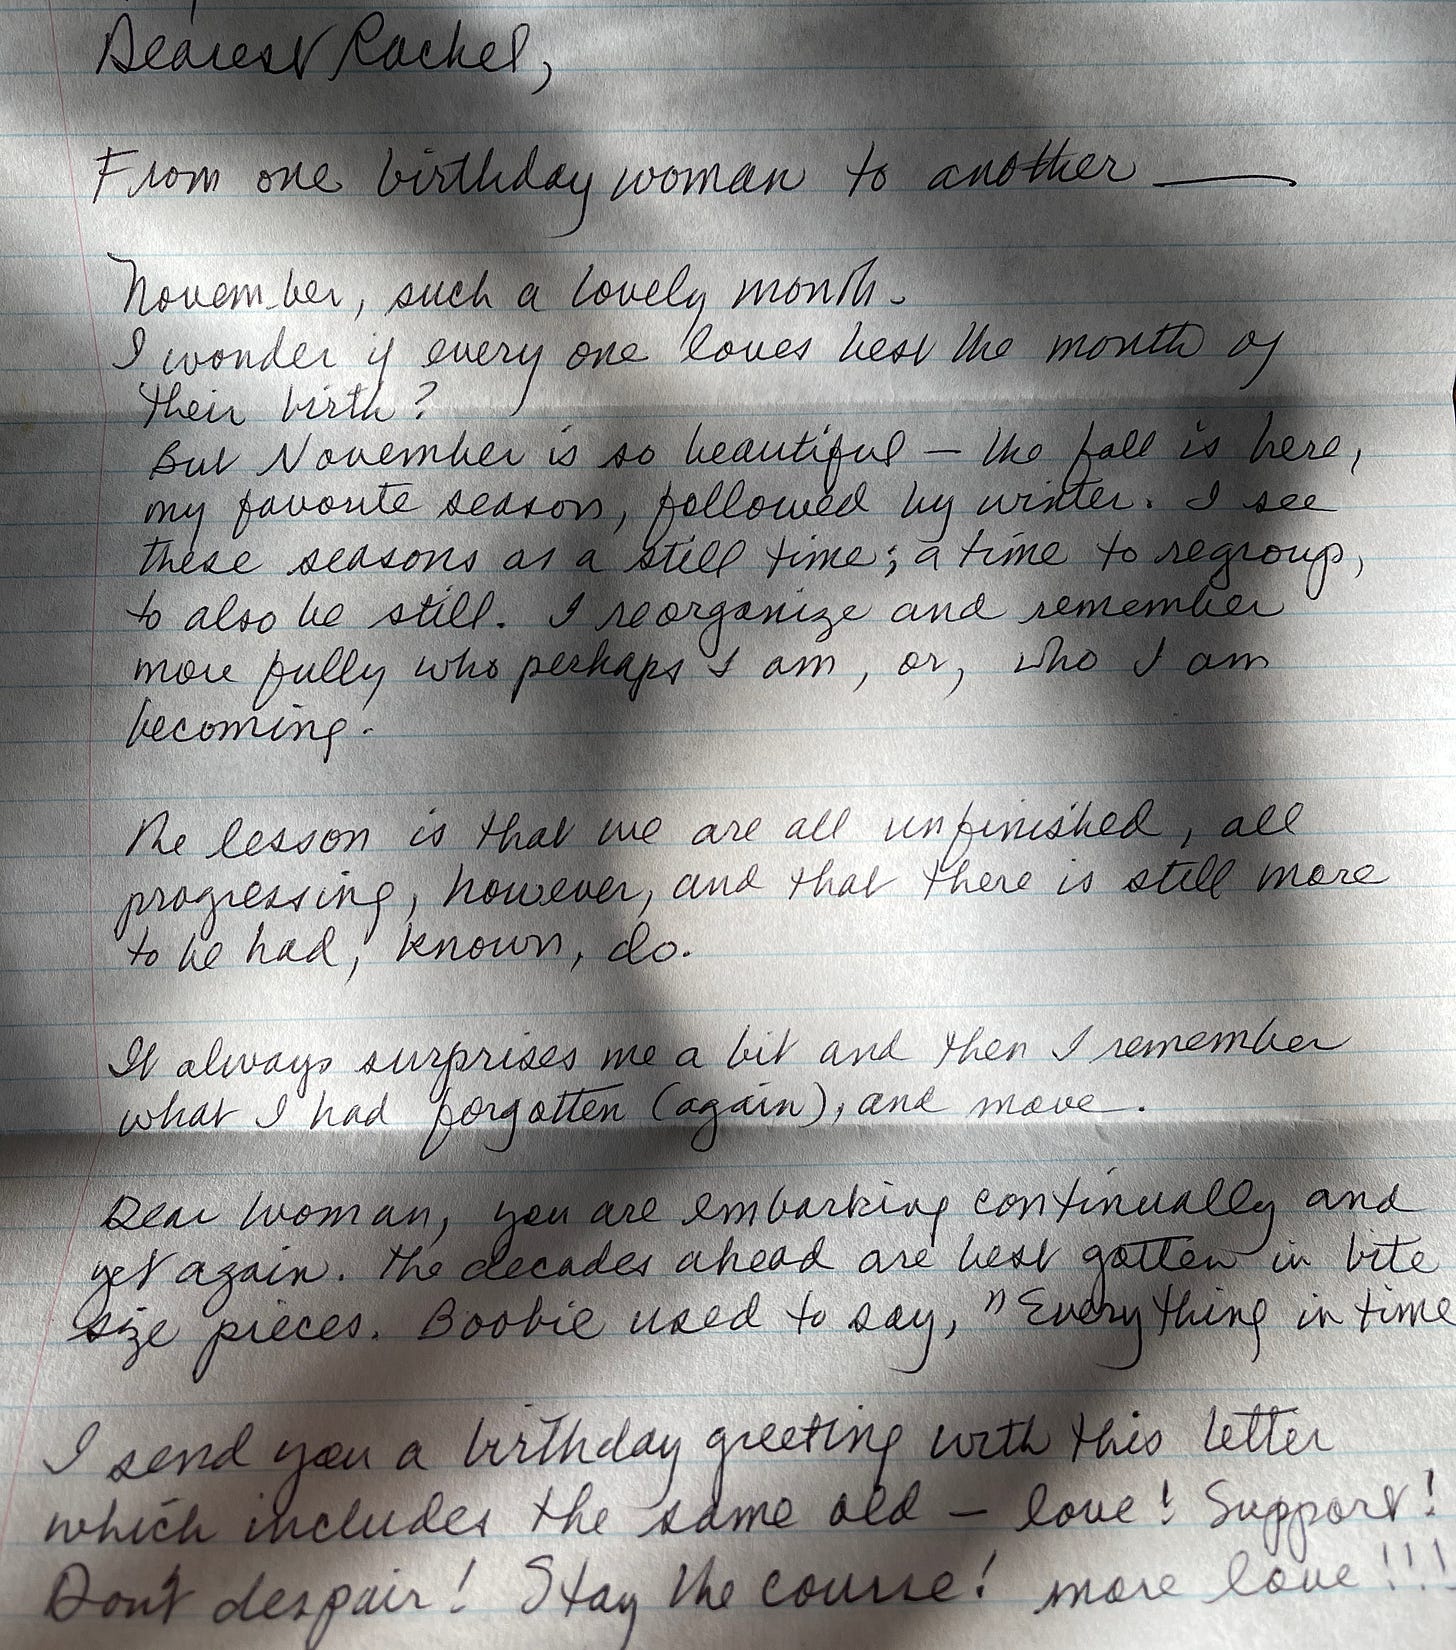 Dearest Rachel,
From one birthday woman to another —
November, such a lovely month.
I wonder if every one loves best the month of
their birth?
But November is so beautiful — the fall is here,
my favorite season, followed by winter. I see
these seasons as a still time; a time to regroup,
to also be still. I reorganize and remember
more fully who perhaps I am, or, who I am
becoming.
The lesson is that we are all unfinished, all
progressing, however, and that there is still more
to be had, known, do.
It always surprises me a bit and then I remember
what I had forgotten (again), and move.
Dear Woman, you are embarking continually and
yet again. The decades ahead are best gotten in bite
size pieces. Boobie used to say, "Everything in time
I send you a birthday greeting with this letter
which includes the same old — love! Support!
Don't despair! Stay the course! more love!!!